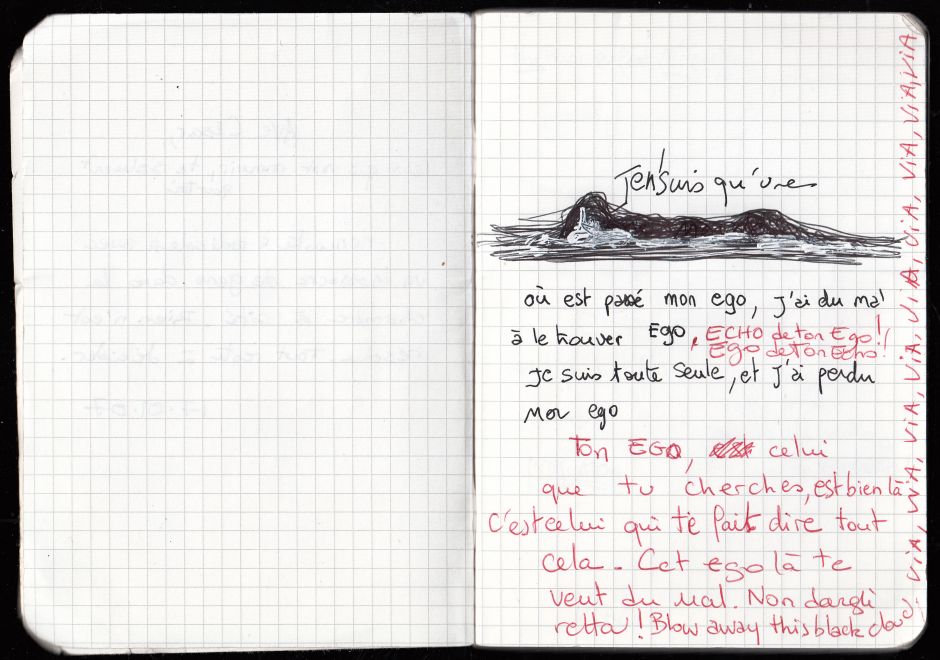 Jen'suis qu'une
où est passé mon ego, j'ai du mal
à le trouver Ego, ECHO de ton Ego!
Ego de ton Echo!
Je suis toute seule, et j'ai perdu
mon ego
Ton EGO, celui
que tu cherches, est bien là
C'est celui qui te fait dire tout
cela. Cet ego là te
veut du mal. Non dargli
retta! Blow away this black cloud,
VIA, VIA, VIA, VIA, VIA, VIA, VIA, VIA, VIA, VIA, VIA